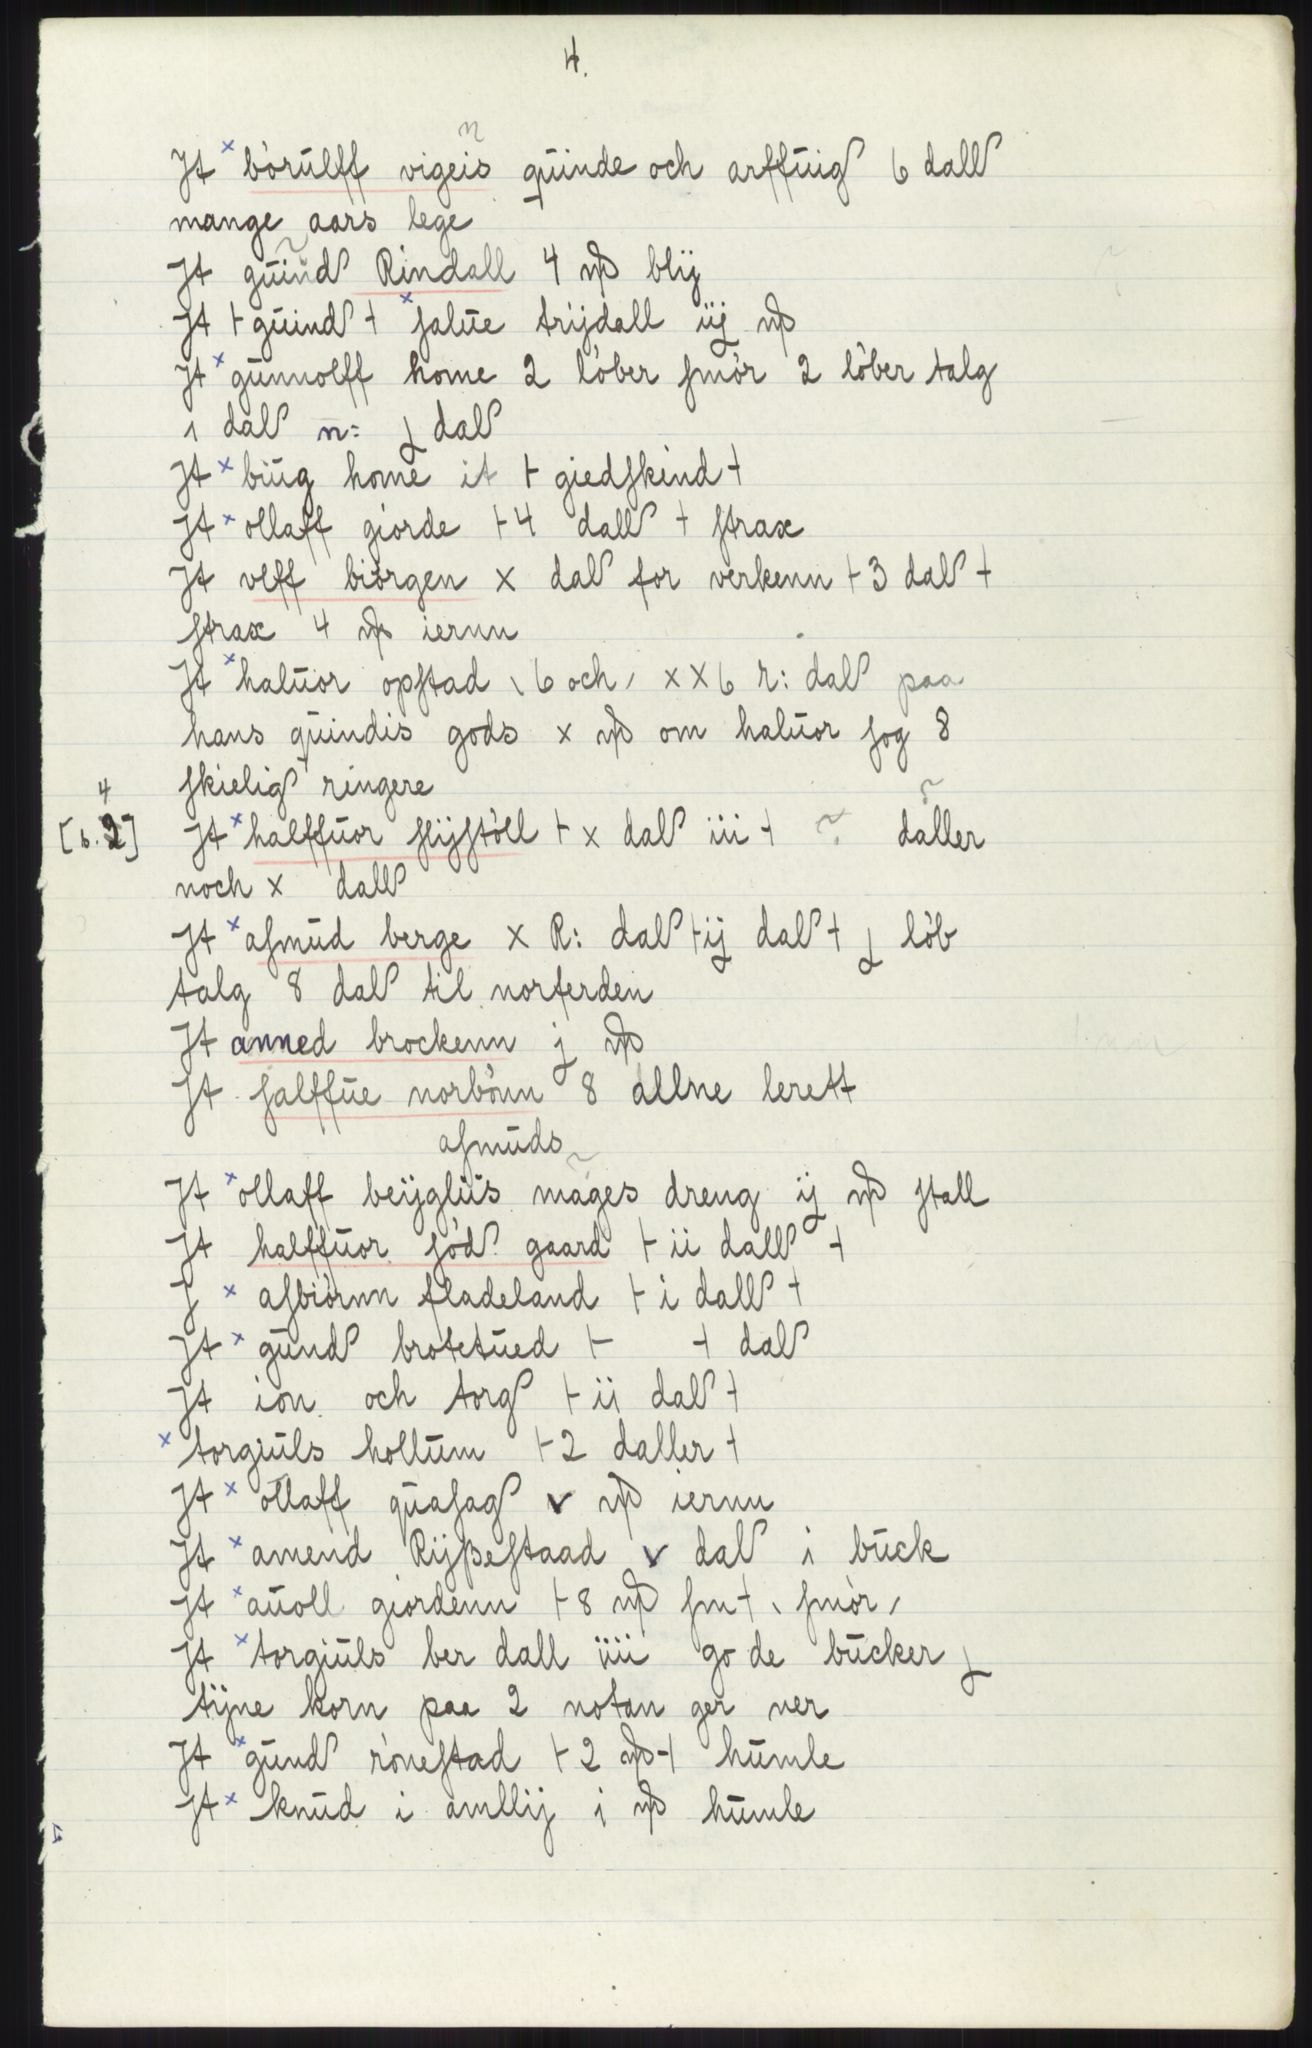 4.
n
It × börulff vigeis quinde och arffuig 6 dall
mange aars lege
It guind Rindall 4 ɱ blij
It ⊢ guind ⊣ × salue trijdall iij ɱ
It × gunnolff home 2 löber smör 2 löber talg
1 dal n: j dal
It × biug home it ⊢ giedskind ⊣
It × ollaff giorde ⊢ 4 dall ⊣ strax
It vlff biörgen x dal for verkenn ⊢ 3 dal ⊣
strax 4 ɱ iernn
It × haluor opstad \ 6 och / xx6 r: dal paa
hans quindis gods x ɱ om haluor sog 8
skielig ringere
4
[b. 2] It × halffuor slijstöll ⊢ x dal iii ⊣ ? daller
noch x dall
It × asmud berge x R: dal ⊢ ij dal ⊣ j löb
talg 8 dal til norferden
It anned brockenn j ɱ
It salffue norbönn 8 allne lerett
asmuds
It × ollaff beijgliis mages dreng ij ɱ stall
It halffuor söd gaard ⊢ ii dall ⊣
J × asbiörnn fladeland ⊢ i dall ⊣
It × gund brotetued ⊢ ⊣ dal
It ion och torg ⊢ ii dal ⊣
× torgiuls hollum ⊢ 2 daller ⊣
It × ollaff quasag v ɱ iernn
It × amend Rijßestaad v dal i buck
It × auoll giordenn ⊢ 8 ɱ sm ⊣ \ smör /
It × torgiuls ber dall iiii gode bucker j
tijne korn paa 2 notan ger ner
It × gund rönestad ⊢ 2 ɱ ⊣ humle
It × knud i amllij i ɱ humle